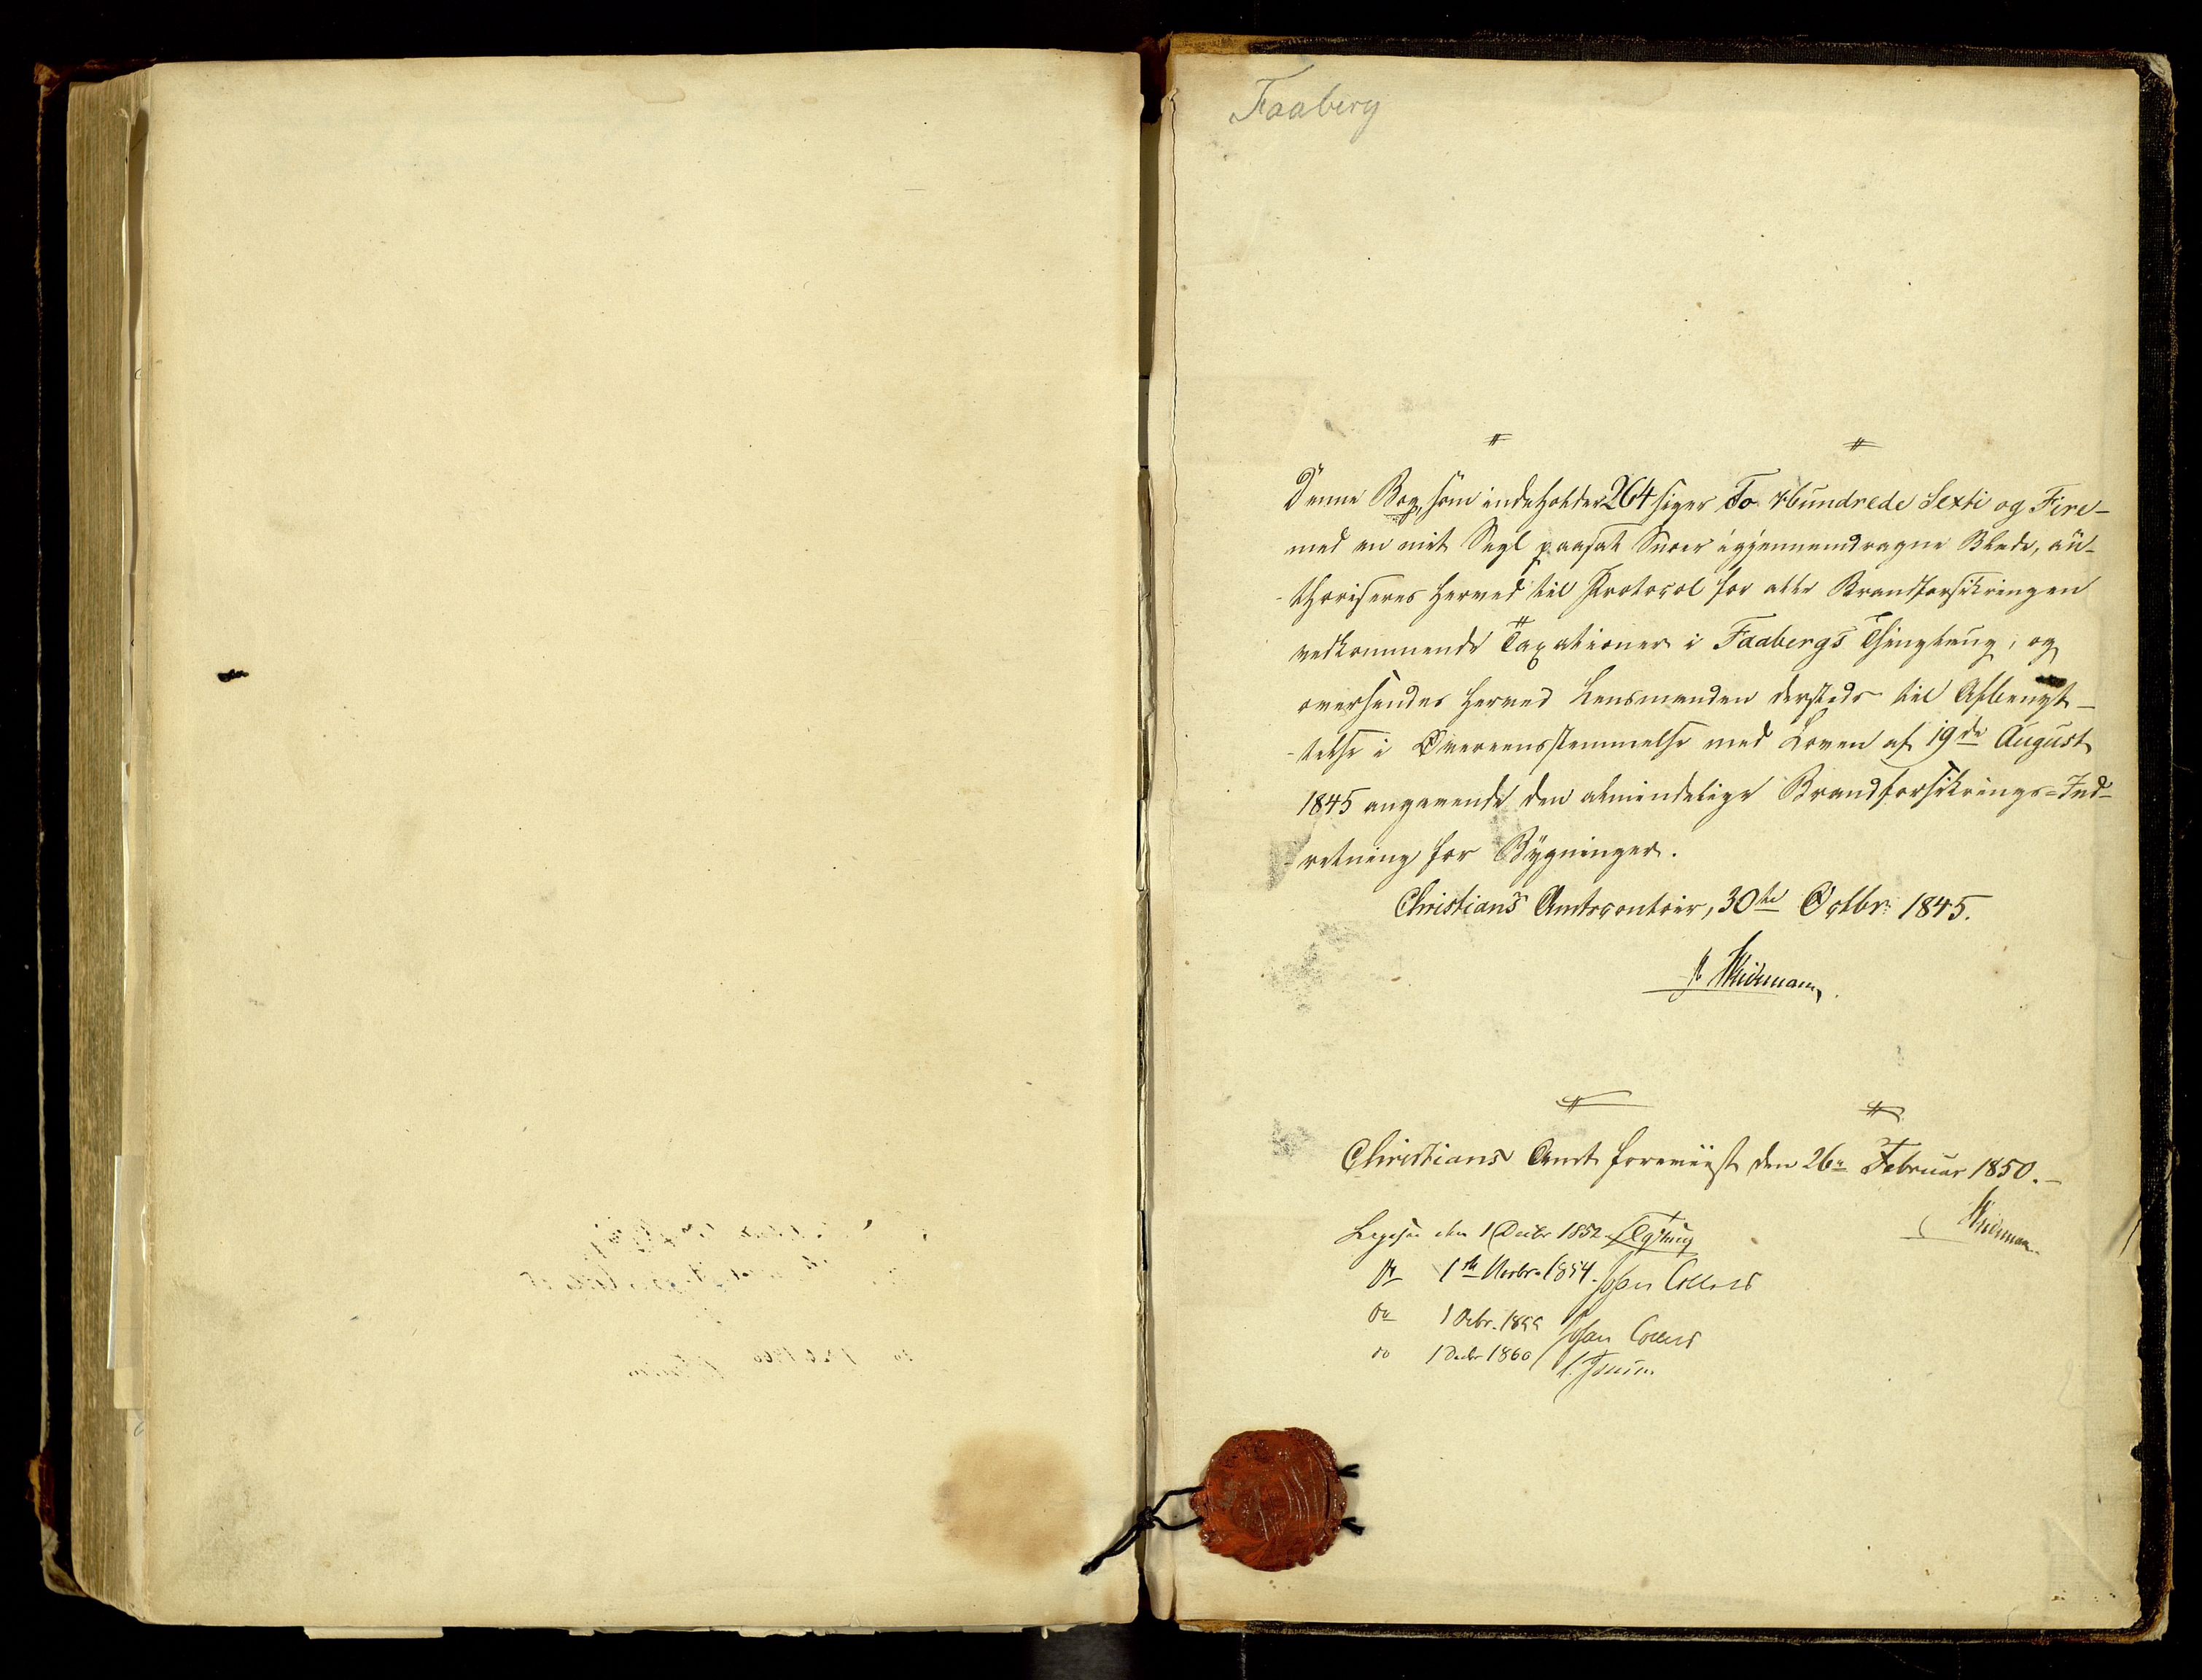 Faaberg
Denne Bog, som indeholder 264 siger To Hundrede Sexti og Fire-
med en mit Segl paasat Snor igjennemdragne Blade, au-
-thoriseres herved til Protocol for alle Brandforsikringen
vedkommende Taxationer i Faabergs Thinglaug, og
oversendes herved Lensmanden dersteds til Afbenyt-
-telse i Overeensstemmelse med Loven af 19de August
1845 angaaende den almindelige Brandforsikrings-Ind-
-retning for Bygninger.
Christians Amtscontoir, 30te Octbr: 1845.
Weidemann
Christians Amt foreviist den 26de Februar 1850.-
Weidemann
den 1 Decbr 1852.
do 1ste Novbr. 1854. Johan Collett
do 1 Johan Collett
do 1 Decbr 1860